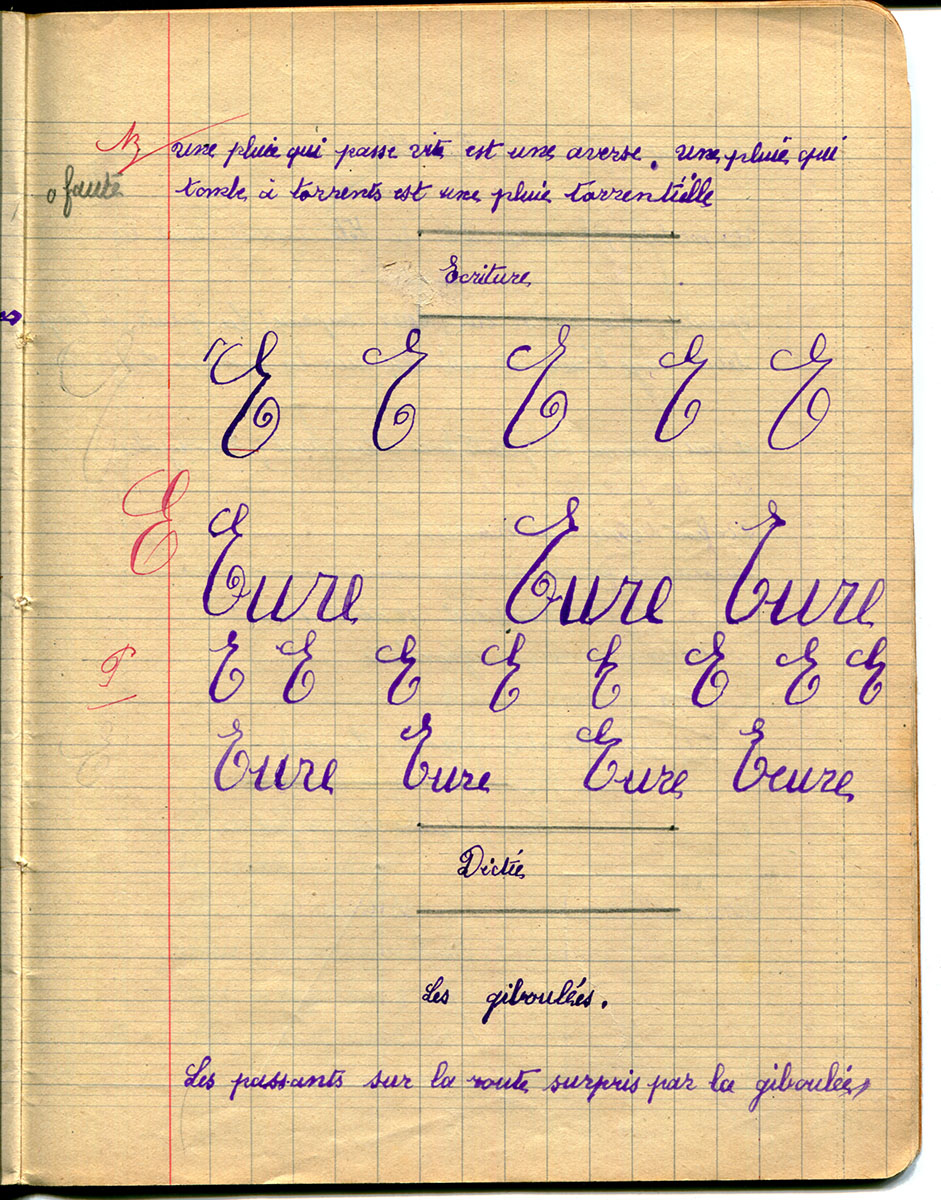 une pluie qui passe vite est une averse. une pluie qui
0 faute
tombe à torrents est une pluie torrentiélle
Ecriture
E E E E E
E
Eure Eure Eure
E E E E E E E E
Eure Eure Eure Eeure
Dictée
Les giboulées.
Les passants sur la route surpris par la giboulée,